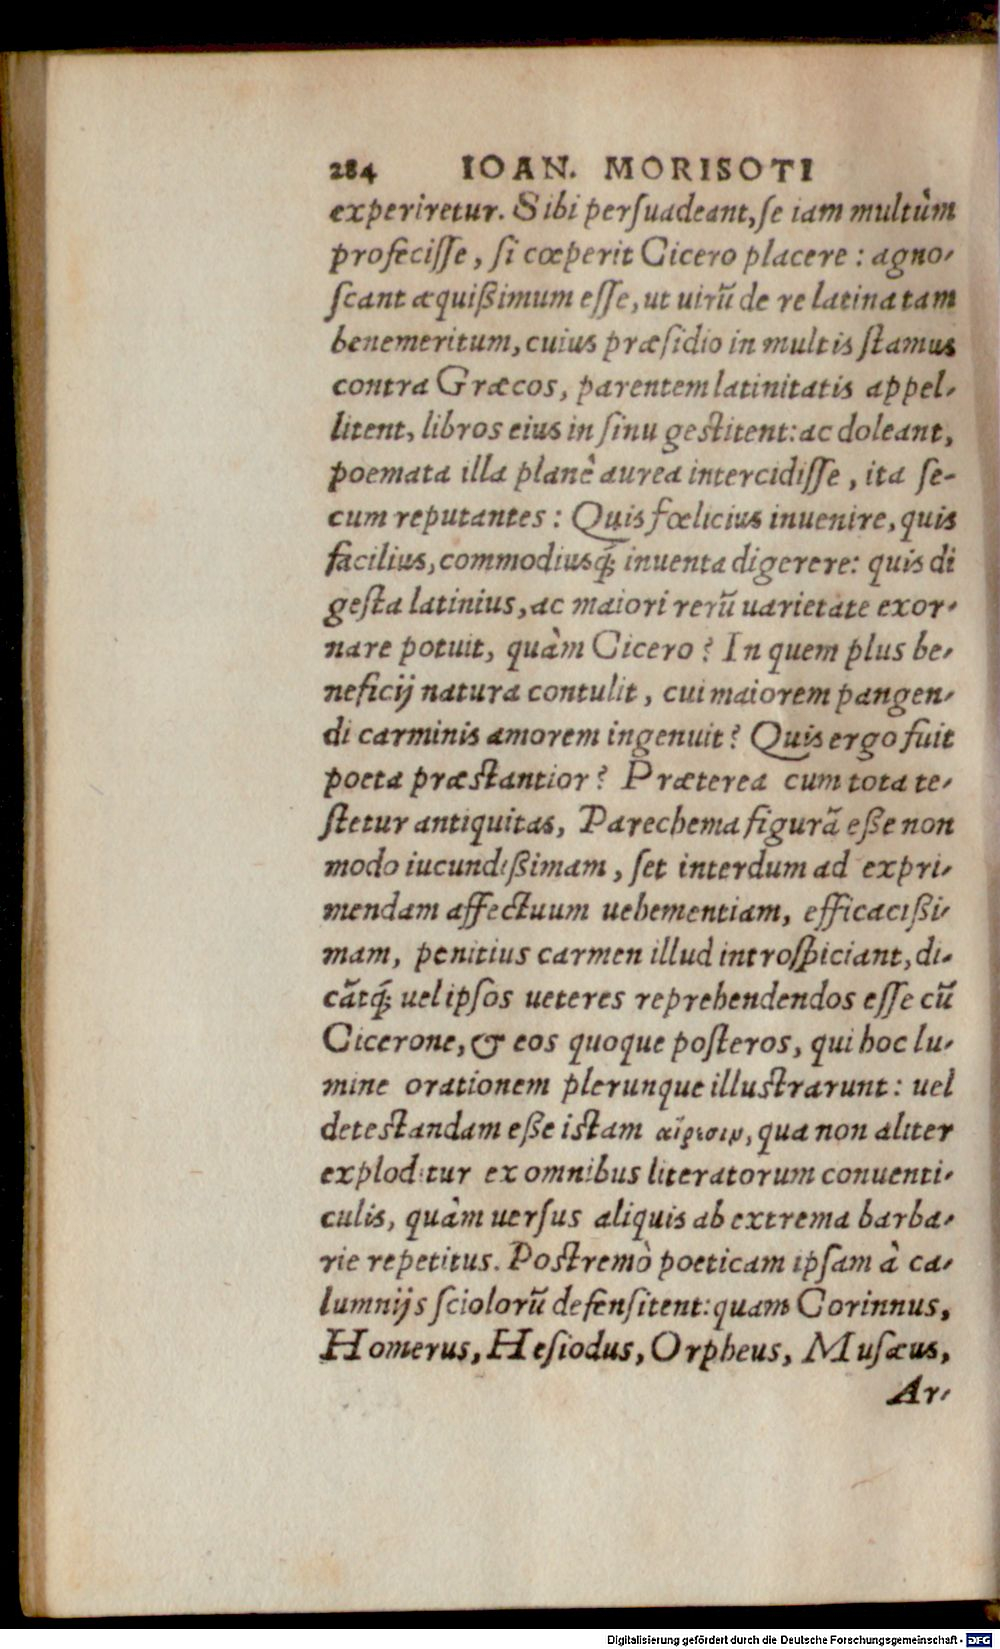 284 IOAN. MORISOTI
experiretur. Sibi persuadeant, se iam multùm
profecisse, si cœperit Cicero placere: agno-
scant æquißimum esse, ut uirũ de re latina tam
benemeritum, cuius præsidio in multis stamus
contra Græcos, parentem latinitatis appel-
litent, libros eius in sinu gestitent: ac doleant,
poemata illa planè aurea intercidisse, ita se-
cum reputantes: Quis fœlicius inuenire, quis
facilius, commodiusq́; inuenta digerere: quis di
gesta latinius, ac maiori rerũ uarietate exor-
nare potuit, quàm Cicero? In quem plus be-
neficij natura contulit, cui maiorem pangen-
di carminis amorem ingenuit? Quis ergo fuit
poeta præstantior? Præterea cum tota te-
stetur antiquitas, Parechema figurã eße non
modo iucundißimam, set interdum ad expri-
mendam affectuum uehementiam, efficacißi-
mam, penitius carmen illud introspiciant, di-
cãtq́; uel ipsos ueteres reprehendendos esse cũ
Cicerone, & eos quoque posteros, qui hoc lu-
mine orationem plerunque illustrarunt: uel
detestandam eße istam αἵρεσιν, qua non aliter
exploditur ex omnibus literatorum conuenti-
culis, quàm uersus aliquis ab extrema barba-
rie repetitus. Postremò poeticam ipsam à ca-
lumnijs sciolorũ defensitent: quam Corinnus,
Homerus, Hesiodus, Orpheus, Musæus,
Ar-
Digitalisierung gefördert durch die Deutsche Forschungsgemeinschaft - DFG